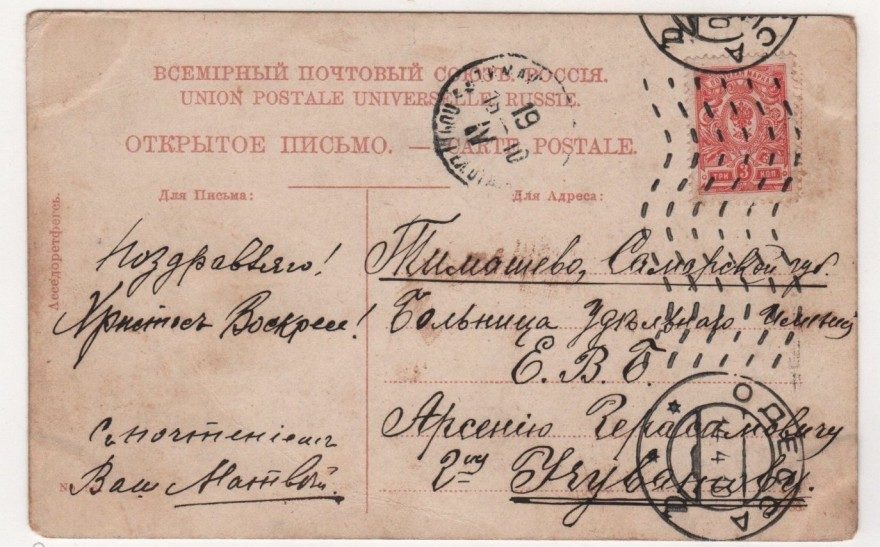 ВСЕМІРНЫЙ ПОЧТОВЫЙ СОЮЗЪ. РОССІЯ.
UNION POSTALE UNIVERSELLE. RUSSIE.
ОТКРЫТОЕ ПИСЬМО. — CARTE POSTALE.
Для Письма:
Для Адреса:
Поздравляю!
Христосъ Воскресе!
Съ почтеніемъ
Ваш Матвей.
Тимашево, Самарской губ.
Больница Удѣльнаго Имѣнія
Е. В. Б.
Арсенію Герасимовичу
2му
19
IV
10
ТРИ 3 КОП.
ОДЕССА